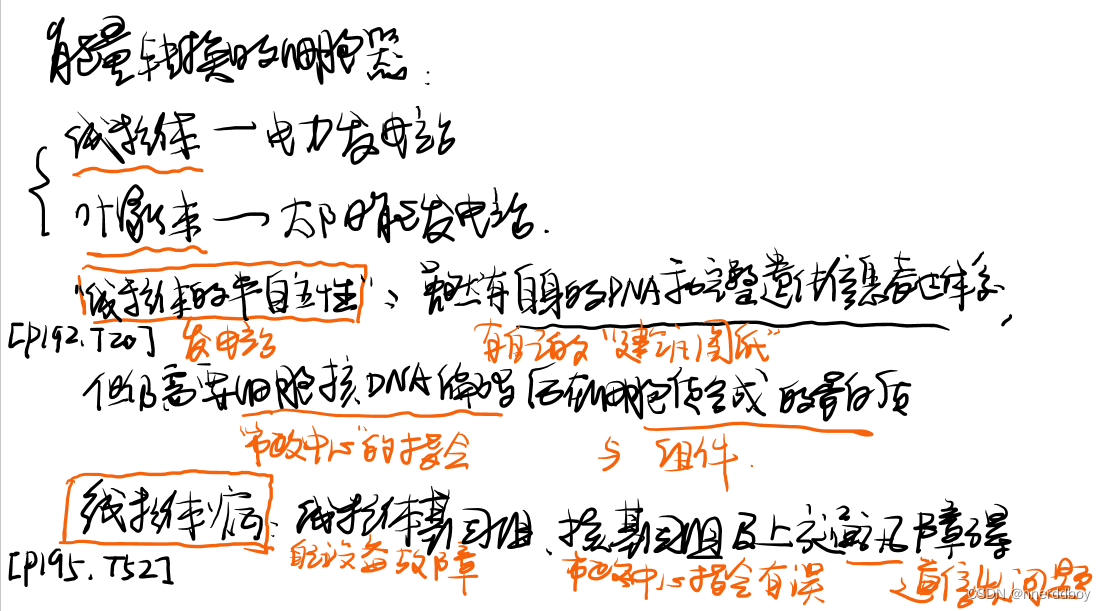 能量转换的细胞器:
线粒体 — 电力发电站
叶绿体 — 太阳能发电站.
"线粒体的半自主性": 虽然有自身的DNA和完整遗传信息表达体系,
[P192.T20] 发电站 有自己的"建筑图纸"
但仍需要细胞核DNA编码后在细胞质合成的蛋白质
"市政中心"的指令 与 组件.
线粒体病: 线粒体基因组、核基因组及上述通讯障碍
[P195.T52] 即设备故障 市政中心指令有误 通信出问题
CSDN @nnerddboy